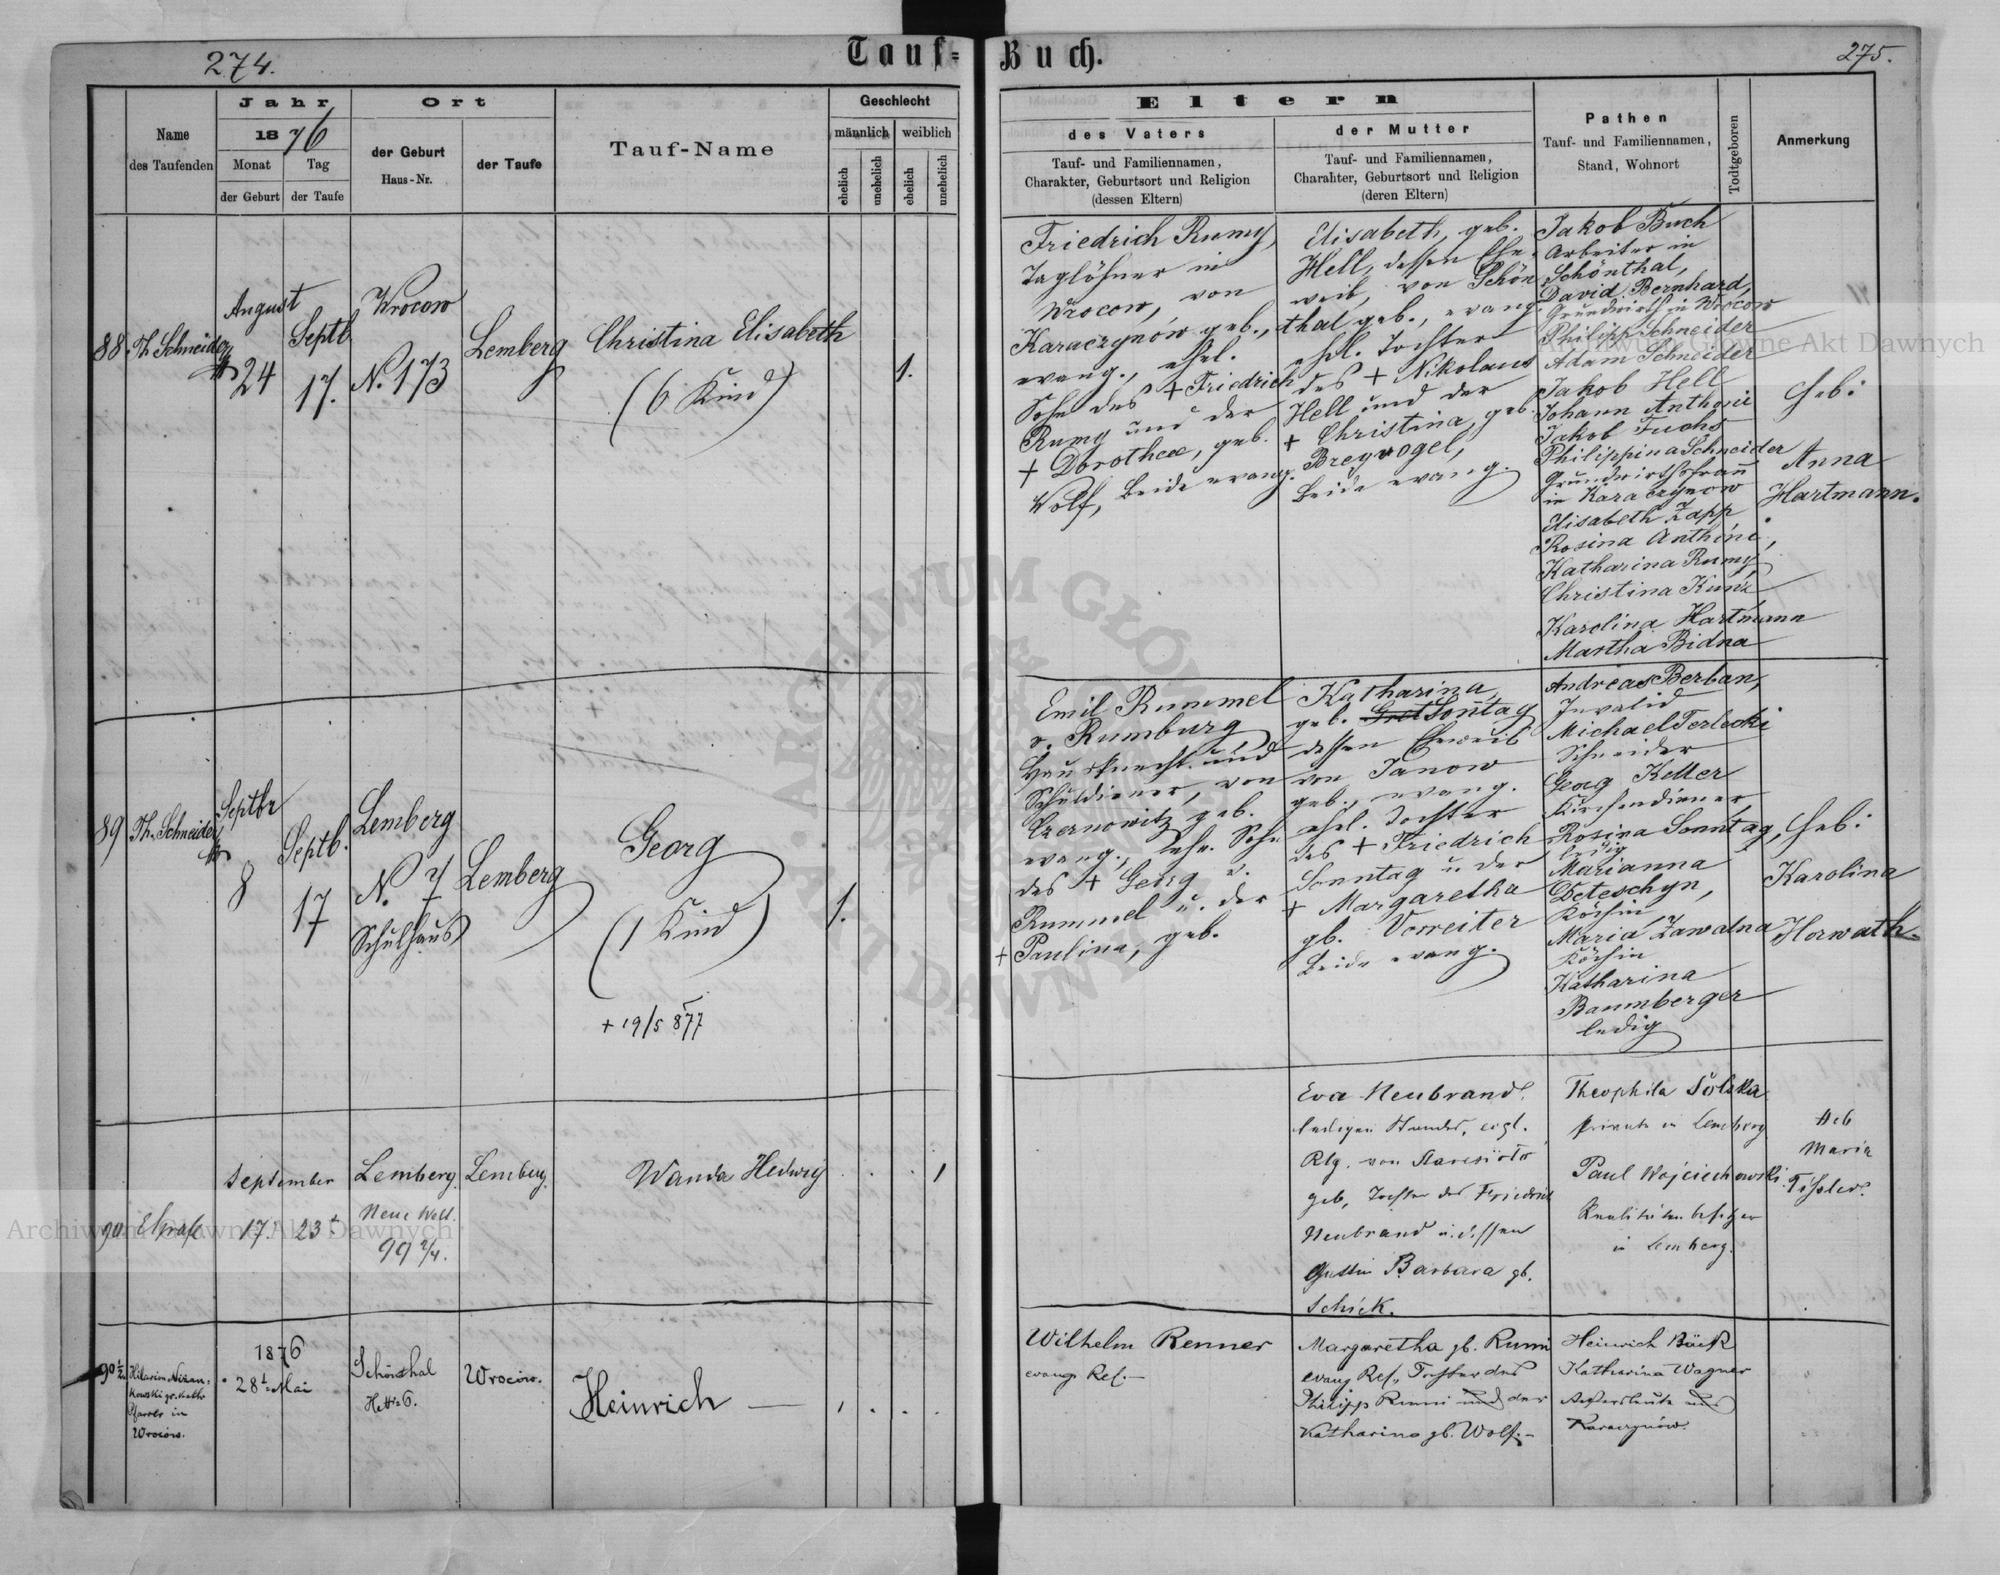 274.
Tauf-
Buch.
275.
Name
des Taufenden
Jahr
1876
Monat
Tag
der Geburt
der Taufe
Ort
der Geburt
Haus-Nr.
der Taufe
Tauf-Name
Geschlecht
männlich
weiblich
ehelich
unehelich
ehelich
unehelich
Eltern
des Vaters
Tauf- und Familiennamen,
Charakter, Geburtsort und Religion
(dessen Eltern)
der Mutter
Tauf- und Familiennamen,
Charakter, Geburtsort und Religion
(deren Eltern)
Pathen
Tauf- und Familiennamen,
Stand, Wohnort
Todtgeboren
Anmerkung
88.
Th. Schneider
August
24
Septb
17.
Wrocow
N. 173
Lemberg
Christina Elisabeth
(6 Kind)
1.
Friedrich Rumy,
Taglöhner in
Wrocow, von
Karaczynów geb.,
evang., ehel.
Sohn des + Friedrich
Rumy und der
+ Dorothea, geb.
Wolf, beide evang.
Elisabeth, geb.
Hell, dessen Ehe-
weib, von Schön-
thal geb., evang.
ehl. Tochter
des + Nikolaus
Hell und der
+ Christina, geb.
Breyvogel,
beide evang.
Jakob Buch
Arbeiter in
Schönthal,
David Bernhard,
Grundwirth in Wrocow
Philipp Schneider
Adam Schneider
Jakob Hell
Johann Anthoni
Jakob Fuchs
Philippina Schneider
Grundwirthsfrau
in Karaczynow
Elisabeth Zapp
Rosina Anthöni,
Katharina Rumy,
Christina Kunz
Karolina Hartmann
Martha Bidna
Heb:
Anna
Hartmann.
89
Th. Schneider
Septbr
8
Septb.
17
Lemberg
N. 7
Schulhaus
Lemberg
Georg
(1 Kind)
+ 19/5 877
1.
Emil Rummel
v. Rumburg
Hausknecht und
Schuldiener, von
Czernowitz geb.
evang., ehe. Sohn
des + Georg v.
Rummel u. der
+ Paulina, geb.
Katharina,
geb. Sonntag
dessen Eheweib
von Janow
geb., evang.
ehel. Tochter
des + Friedrich
Sonntag u der
+ Margaretha
gb. Vorreiter
beide evang.
Andreas Berban,
Invalid
Michael Terlecki
Schneider
Georg Keller
Kirchendiener
Rosina Sonntag,
ledig
Marianna
Deteschyn,
Köchin
Maria Zawadna
Köchin
Katharina
Baumberger
ledig
Heb:
Karolina
Horwath
90
September
17.
23t
Lemberg.
Neue Welt.
99 2/4.
Lemberg.
Wanda Hedwig
1
Eva Neubrand.
ledigen Standes, evgl.
Rlg. von
geb, Tochter des Friedrich
Neubrand u. dessen
Gattin Barbara gb.
Schick.
Theophila Solska
Private in Lemberg
Paul Wojciechowski.
Realitätenbesitzer
in Lemberg.
Heb
Maria
90 1/2
Hilarion Nizan-
kowski gr. kath
Pfarrer in
Wrocow.
1876
28t Mai
Schönthal
6.
Wrocow.
Heinrich —
Wilhelm Renner
evang Ref. —
Margaretha gb. Rumi
evang Ref., Tochter des
Philipp Rumi und der
Katharina gb. Wolf. -
Heinrich Bäck
Katharina Wagner
Ackersleute aus
Karaczynów.
Archiwum Główne Akt Dawnych
Archiwum Główne Akt Dawnych
ARCHIWUM GŁÓWNE AKT DAWNYCH